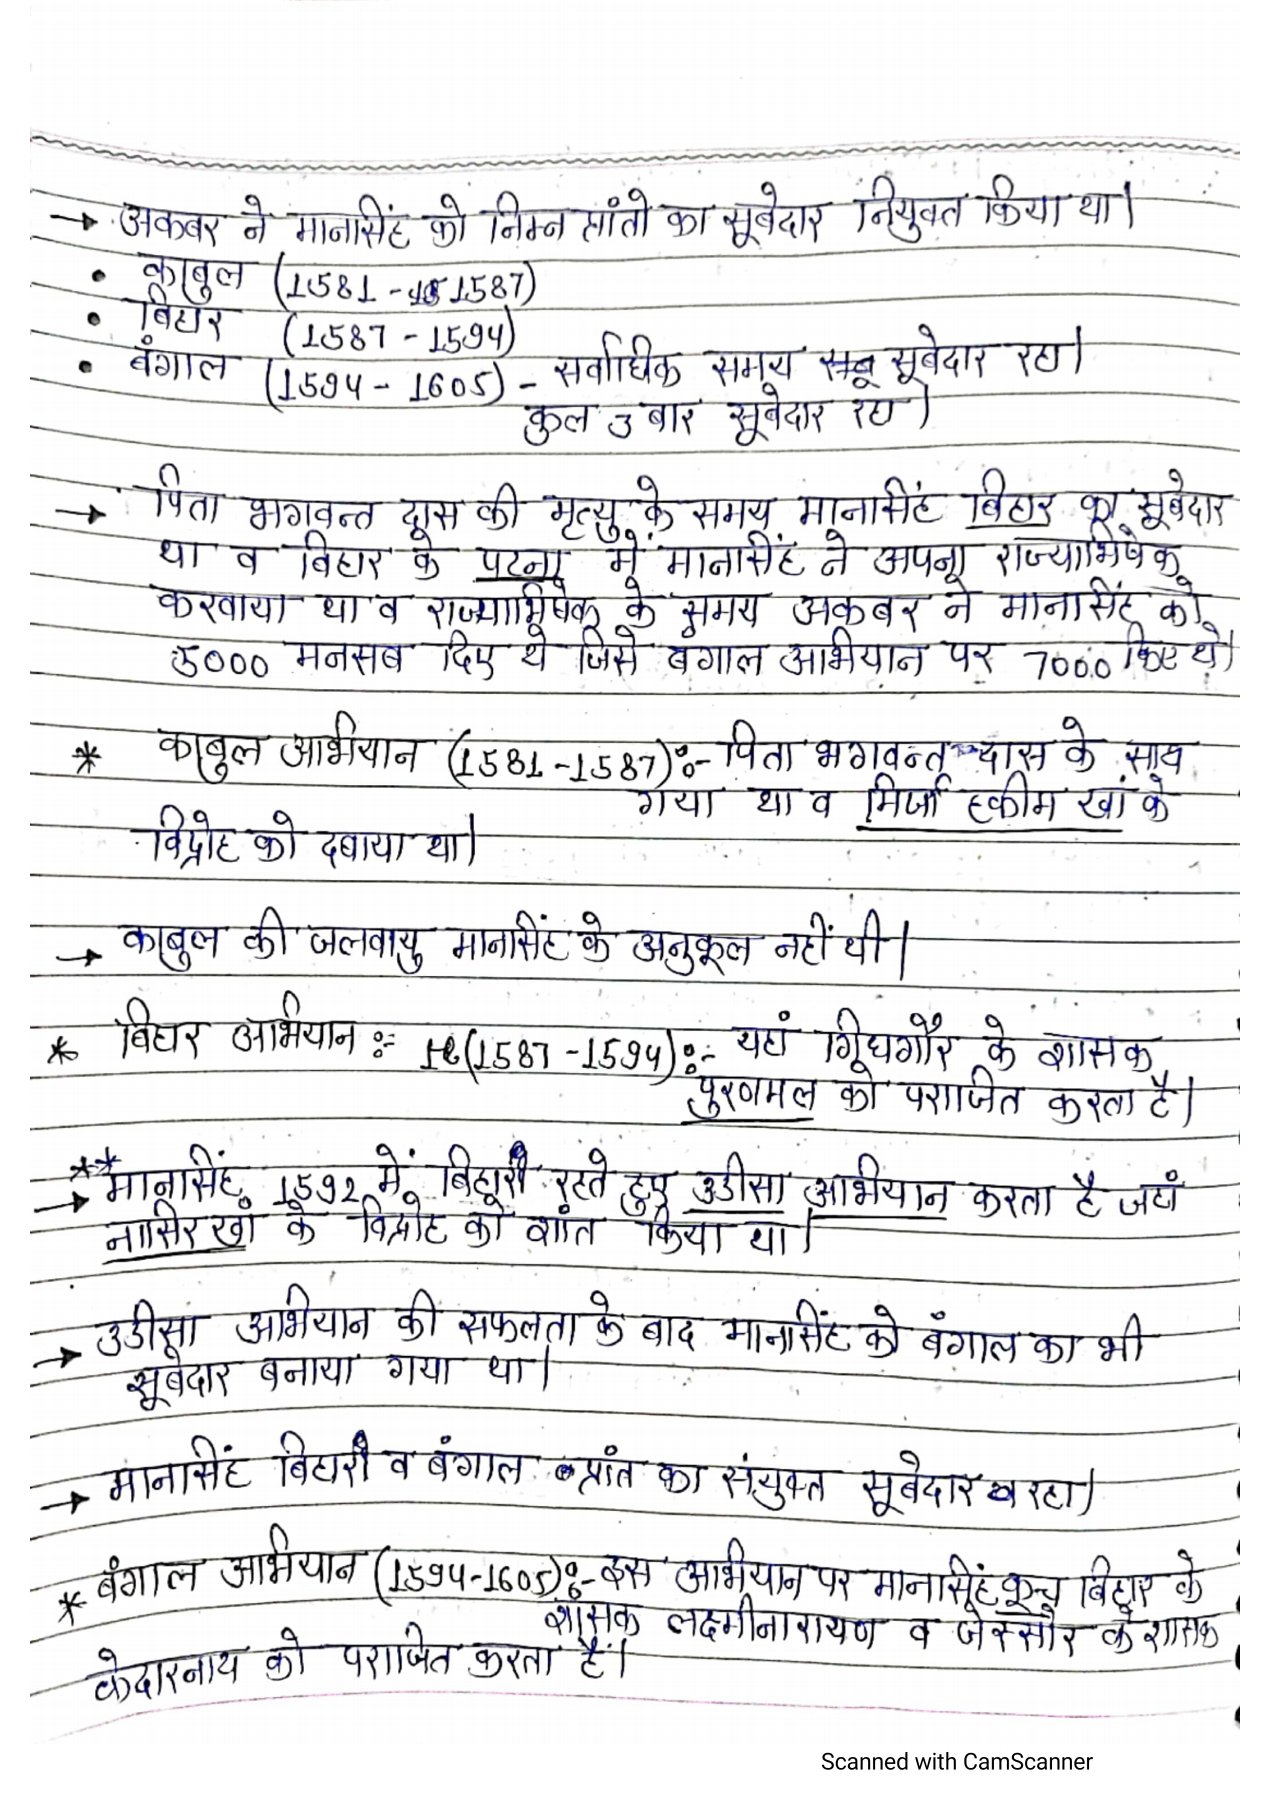 → अकबर ने मानसिंह को निम्न प्रांतो का सूबेदार नियुक्त किया था।
• काबुल (1581 - 1587)
• बिहार (1587 - 1594)
• बंगाल (1594 - 1605) - सर्वाधिक समय सूबेदार रहा।
कुल 3 बार सूबेदार रहा।
→ पिता भगवन्त दास की मृत्यु के समय मानसिंह बिहार का सूबेदार
था व बिहार के पटना में मानसिंह ने अपना राज्याभिषेक
करवाया था व राज्याभिषेक के समय अकबर ने मानसिंह को
5000 मनसब दिए थे जिसे बंगाल अभियान पर 7000 किए थे।
* काबुल अभियान (1581-1587):- पिता भगवन्त दास के साथ
गया था व मिर्जा हकीम खां के
विद्रोह को दबाया था।
→ काबुल की जलवायु मानसिंह के अनुकूल नहीं थी।
* बिहार अभियान :- (1587-1594):- यहां गिधगौर के शासक
पुरणमल को पराजित करता है।
** → मानसिंह 1592 में बिहार रहते हुए उडीसा अभियान करता है जहां
नासिर खां के विद्रोह को शांत किया था।
→ उडीसा अभियान की सफलता के बाद मानसिंह को बंगाल का भी
सूबेदार बनाया गया था।
→ मानसिंह बिहार व बंगाल प्रांत का संयुक्त सूबेदार रहा।
* बंगाल अभियान (1594-1605):- इस अभियान पर मानसिंह कूच बिहार के
शासक लक्ष्मीनारायण व जेस्सोर के शासक
केदारनाथ को पराजित करता है।
Scanned with CamScanner